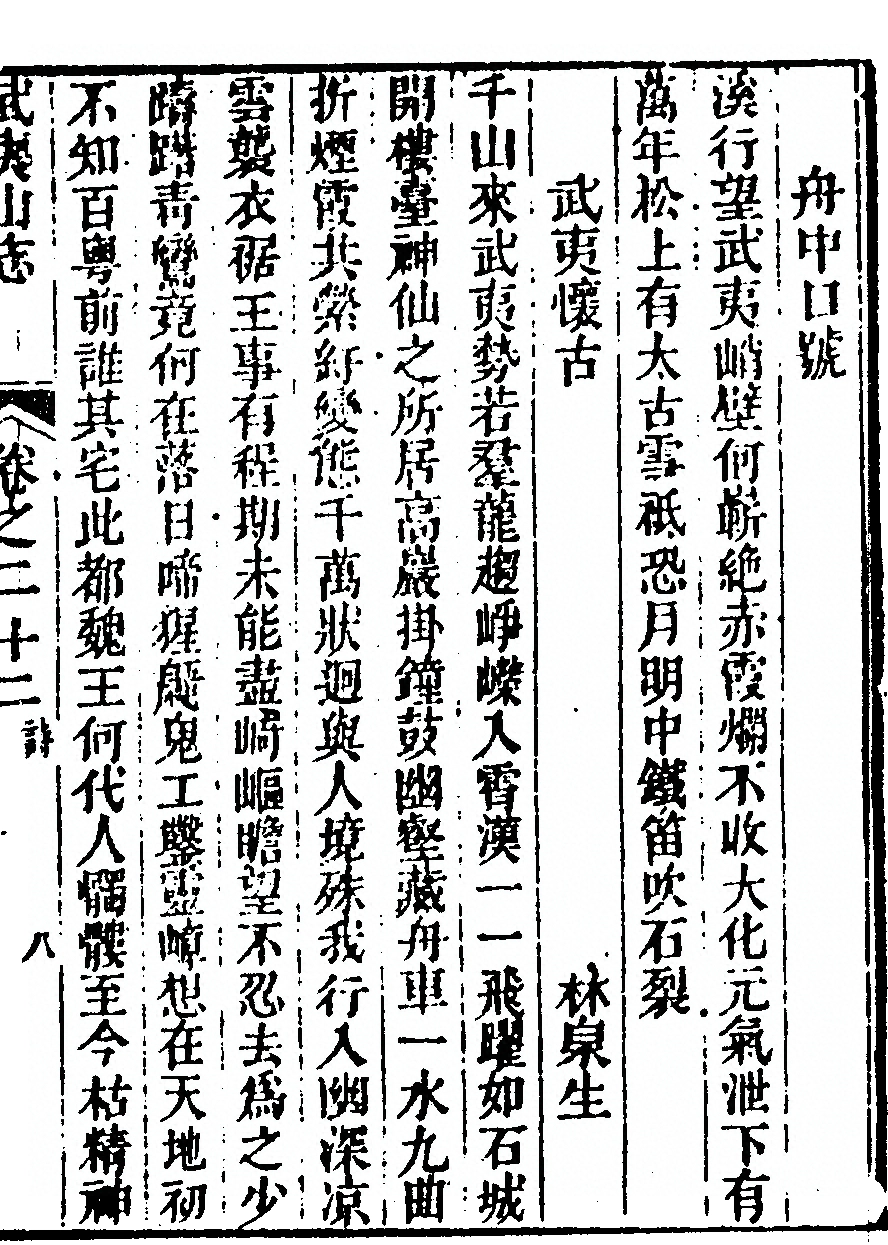 舟中口號
溪行望武夷峭壁何嶄絶赤霞爛不收大化元氣泄下有
萬年松上有太古雪祗恐月明中鐵笛吹石裂
武夷懷古 林泉生
千山來武夷勢若羣龍趨崢嶸入霄漢一一飛躍如石城
開樓臺神仙之所居高巖掛鐘鼓幽壑藏舟車一水九曲
折煙霞共縈紆變態千萬狀迥與人境殊我行入幽深凉
雲襲衣裾王事有程期未能盡崎嶇瞻望不忍去爲之少
躊躇青鸞竟何在落日啼猩鼯鬼工鑿靈嶂想在天地初
不知百粤前誰其宅此都魏王何代人髑髏至今枯精神
武夷山志 卷之二十二 詩 八